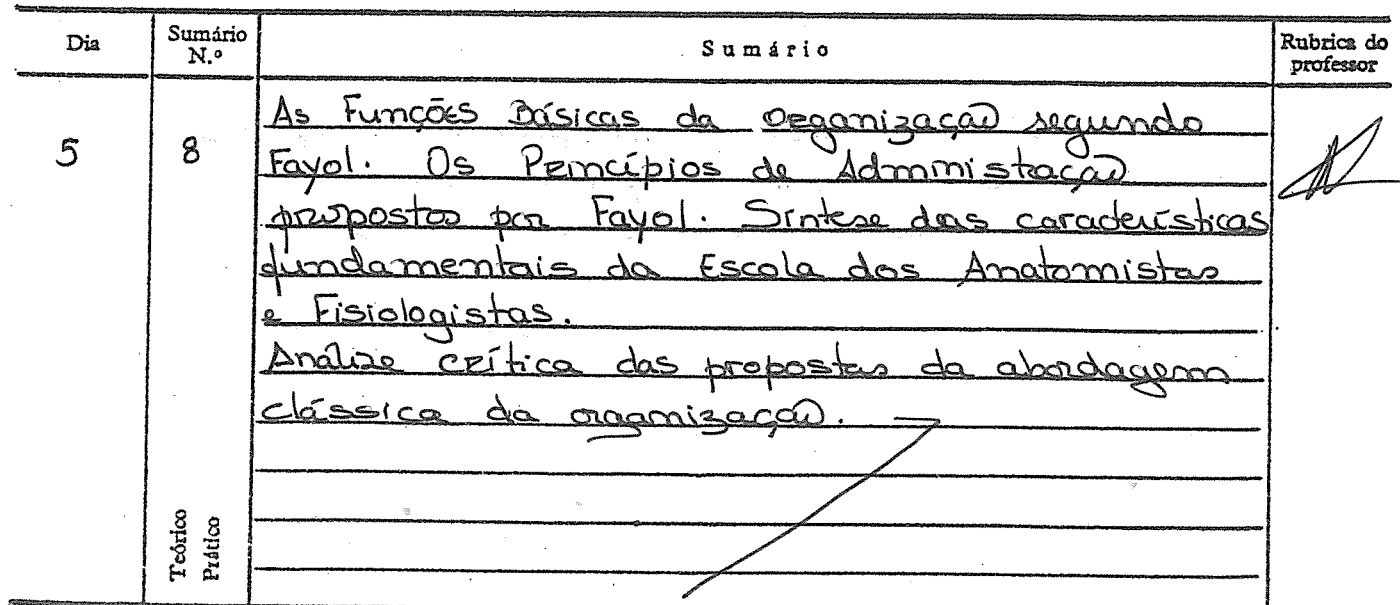 Dia Sumário N.º Sumário Rubrica do professor
5 8 As Funções Básicas da Organização segundo
Fayol. Os Princípios de Administração
propostos por Fayol. Síntese das características
fundamentais da Escola dos Anatomistas
e Fisiologistas.
Análise crítica das propostas da abordagem
clássica da organização.
Teórico
Prático